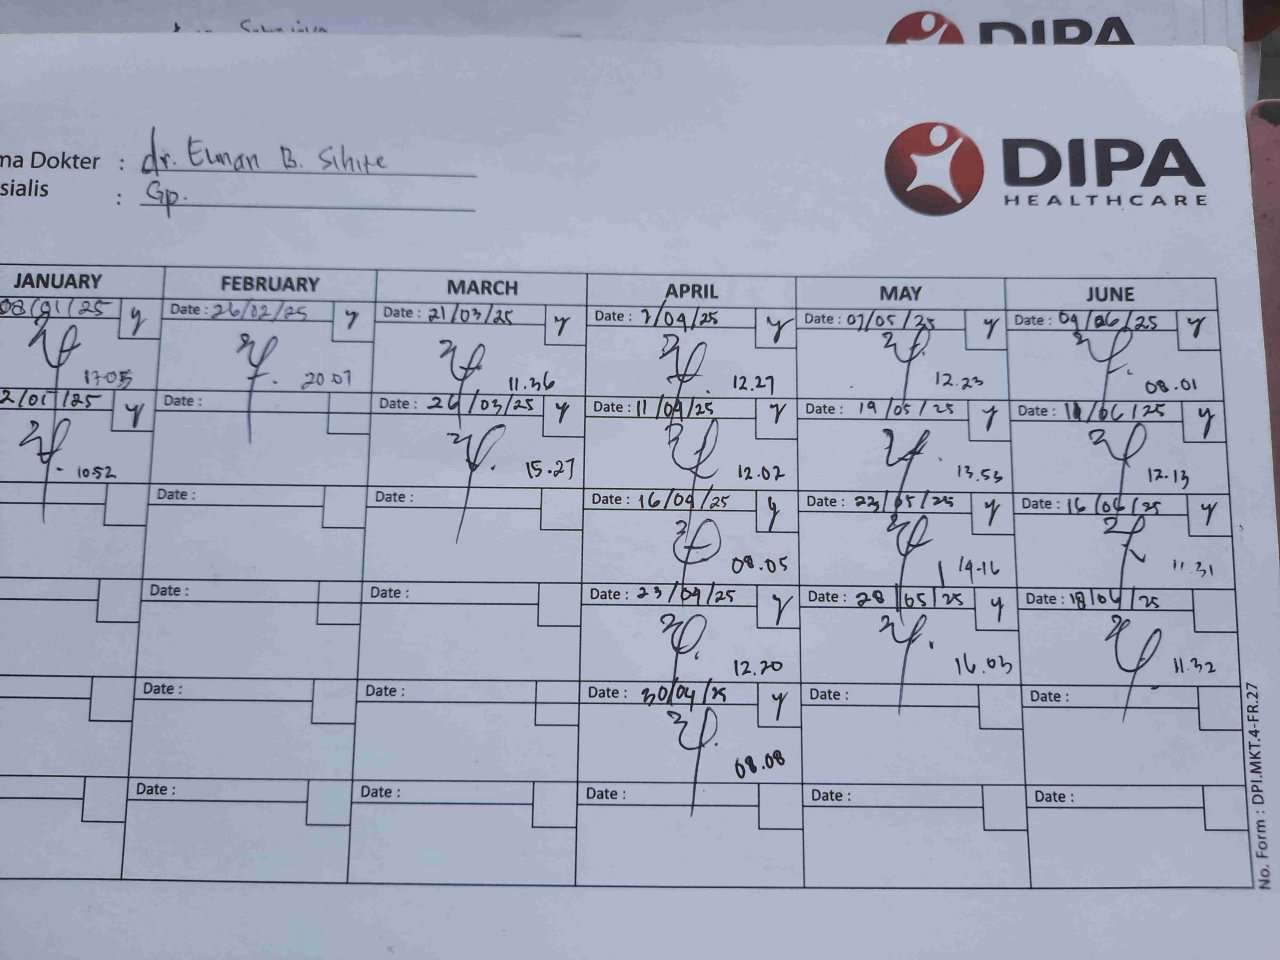 DIPA
ma Dokter : dr. Elman B. Sihite
sialis : Gp.
DIPA
HEALTHCARE
JANUARY FEBRUARY MARCH APRIL MAY JUNE
08/01/25 y Date : 26/02/25 y Date : 21/03/25 y Date : 7/04/25 y Date : 07/05/25 y Date : 04/06/25 y
17.05 20.07 11.36 12.27 12.23 08.01
2/01/25 y Date : Date : 26/03/25 y Date : 11/04/25 y Date : 19/05/25 y Date : 11/06/25 y
10.52 15.27 12.02 13.53 12.13
Date : Date : Date : 16/04/25 y Date : 23/05/25 y Date : 16/06/25 y
08.05 14.16 11.31
Date : Date : Date : 23/04/25 y Date : 28/05/25 y Date : 18/06/25
12.20 16.03 11.32
Date : Date : Date : 30/04/25 y Date : Date :
08.08
Date : Date : Date : Date : Date :
No. Form : DPI.MKT.4-FR.27